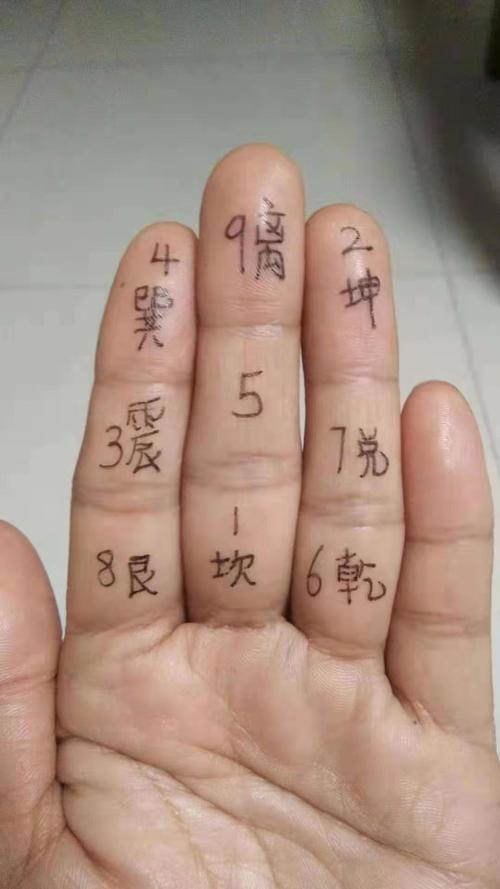 4
巽
9离
2
坤
3震
5
7兑
8艮
1
坎
6乾